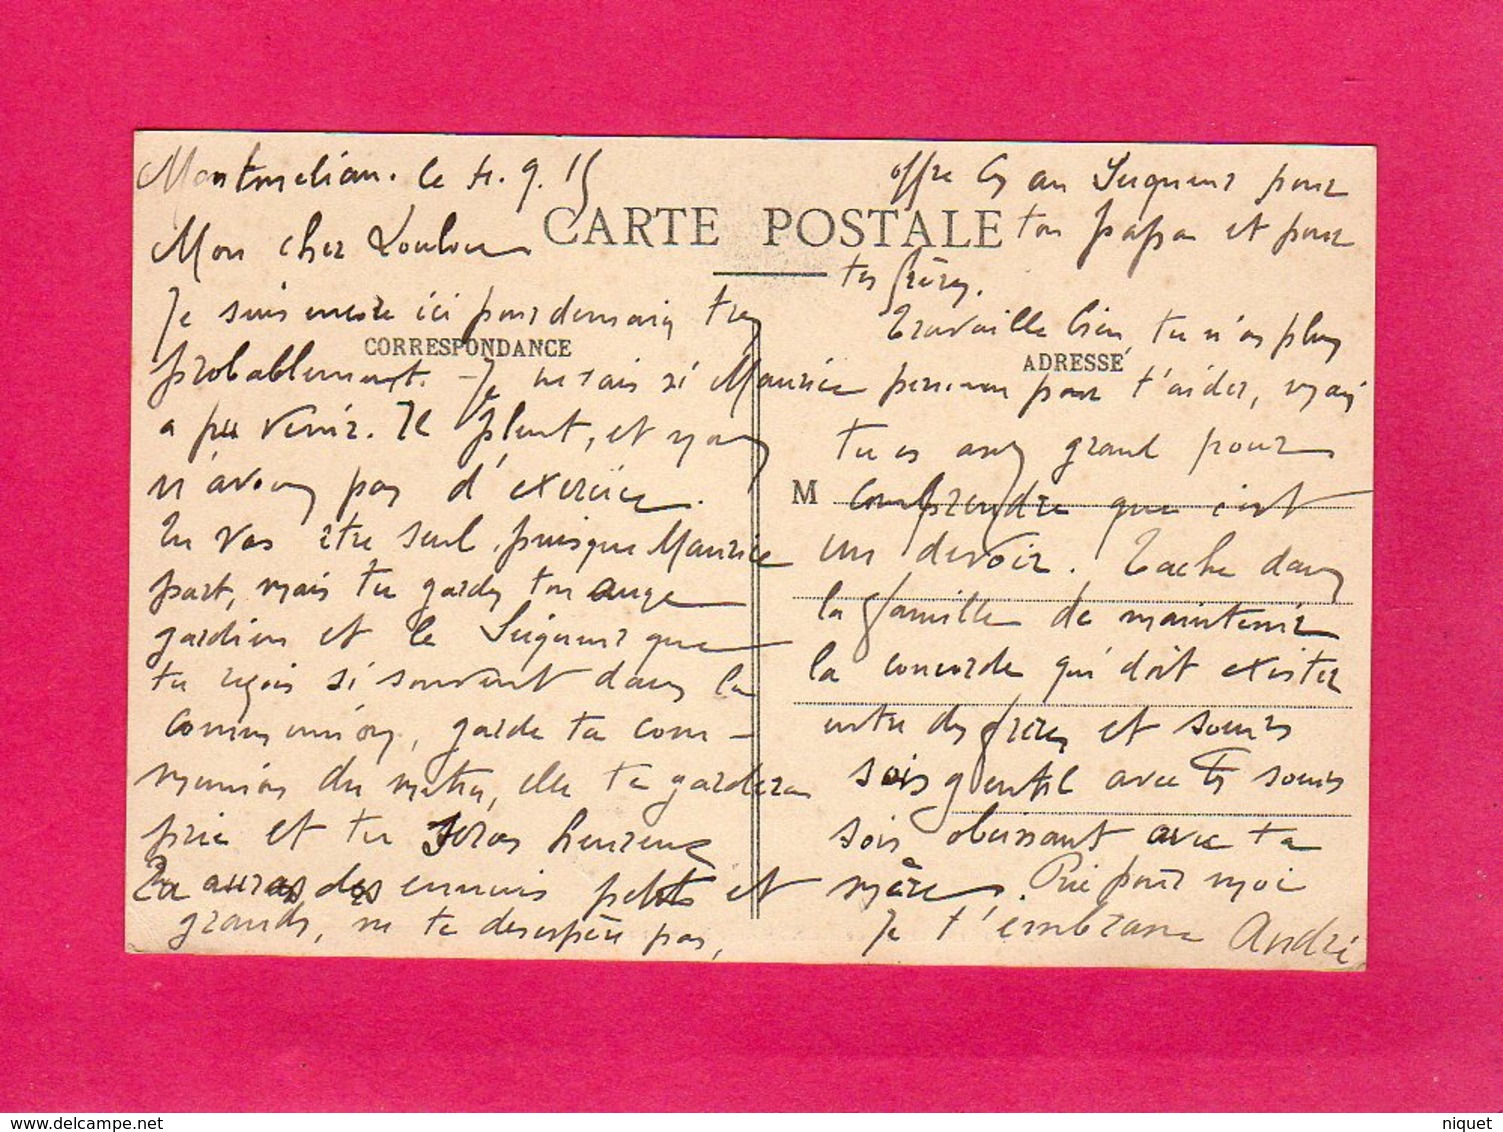 Montmélian. le 4.9.15
CARTE POSTALE
Mon cher Loulou
Je suis encore ici pour demain très
CORRESPONDANCE
probablement. - Je ne sais si Maurice
a pu venir. Il pleut, et nous
n'avons pas d'exercice.
Tu vas être seul, puisque Maurice
part, mais tu gardes ton ange
gardien et le Seigneur que
tu reçois si souvent dans la
communion, garde ta com-
munion du matin, elle te gardera
prie et tu seras heureux
Tu auras des ennuis petits et
grands, ne te désespère pas,
offre les au Seigneur pour
ton papa et pour
tes frères.
Travaille bien, tu n'as plus
ADRESSE
personne pour t'aider, mais
tu es assez grand pour
M
comprendre que c'est
un devoir. Tache dans
la famille de maintenir
la concorde qui doit exister
entre des frères et soeurs
sois gentil avec tes soeurs
sois obeissant avec ta
mère. Prie pour moi
Je t'embrasse André
niquet